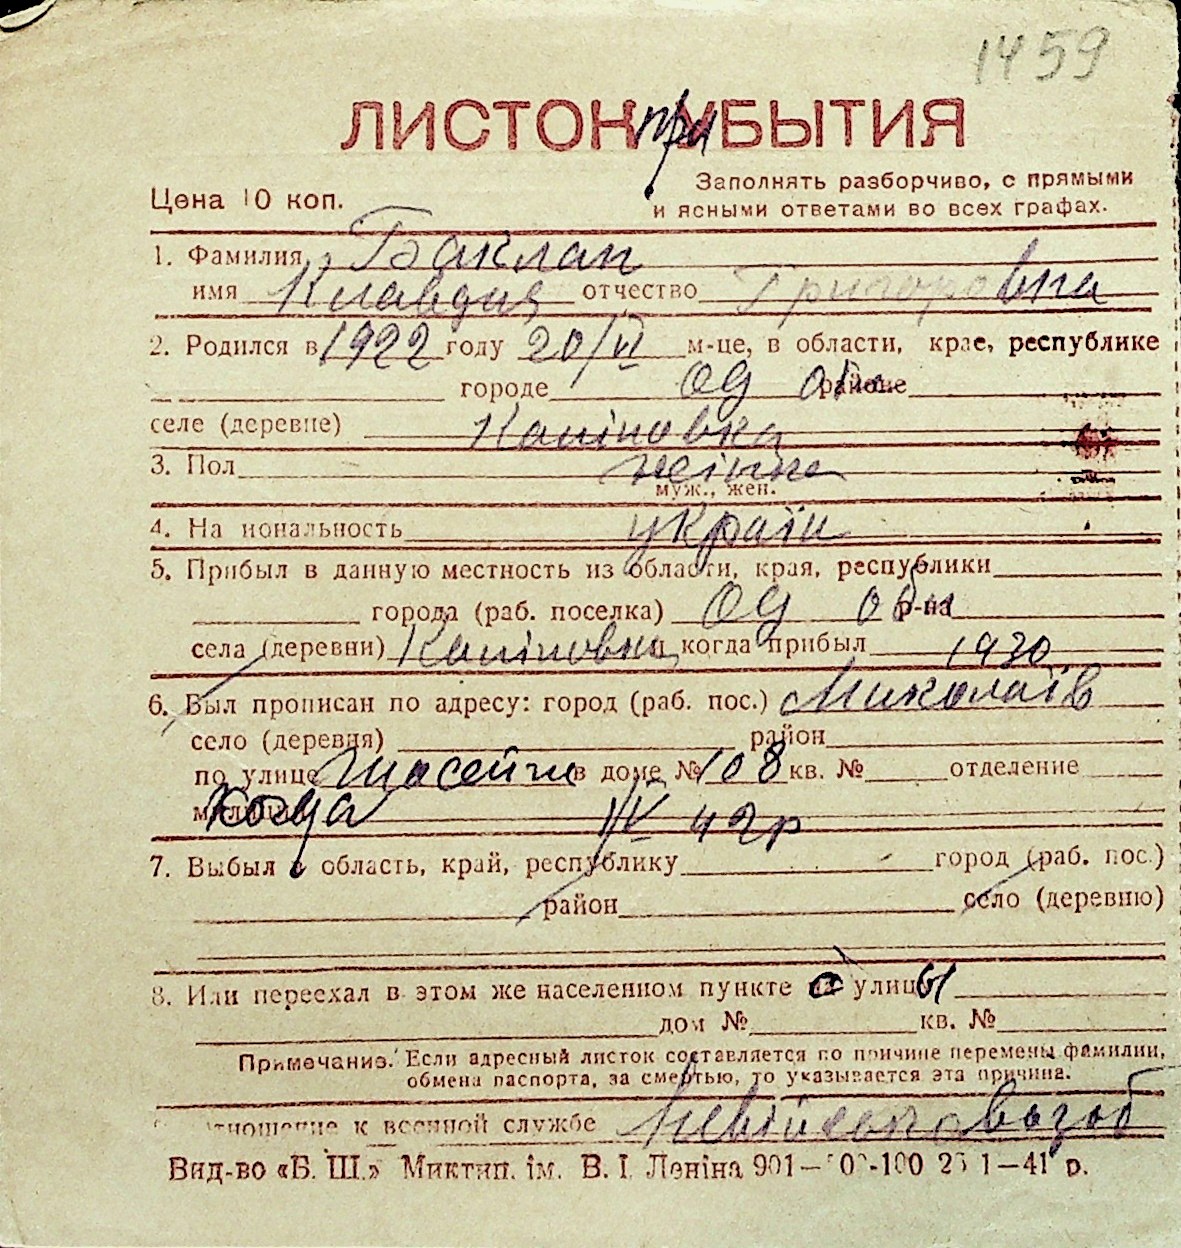 1459
ЛИСТОК при УБЫТИЯ
Цена 10 коп.
Заполнять разборчиво, с прямыми
и ясными ответами во всех графах.
1. Фамилия Баклан
имя Клавдия отчество Григоровна
2. Родился в 1922 году 20/VI м-це, в области, крае, республике
городе ОД обл районе
селе (деревне) Калиновка
3. Пол жеінка
муж., жен.
4. На иональность україн
5. Прибыл в данную местность из области, края, республики
города (раб. поселка) ОД обл р-на
села (деревни) Каліновка и когда прибыл 1930
6. Был прописан по адресу: город (раб. пос.) Миколаїв
село (деревня) район
по улице Шосейна в доме № 108 кв. № отделение
милиции Когда IV 42р
7. Выбыл в область, край, республику город (раб. пос.)
район село (деревню)
8. Или переехал в этом же населенном пункте с улицы
дом № кв. №
Примечание. Если адресный листок составляется по причине перемены фамилии,
обмена паспорта, за смертью, то указывается эта причина.
отношение к военной службе
Вид-во «Б. Ш.» Миктип. ім. В. І. Леніна 901— 1—41 р.